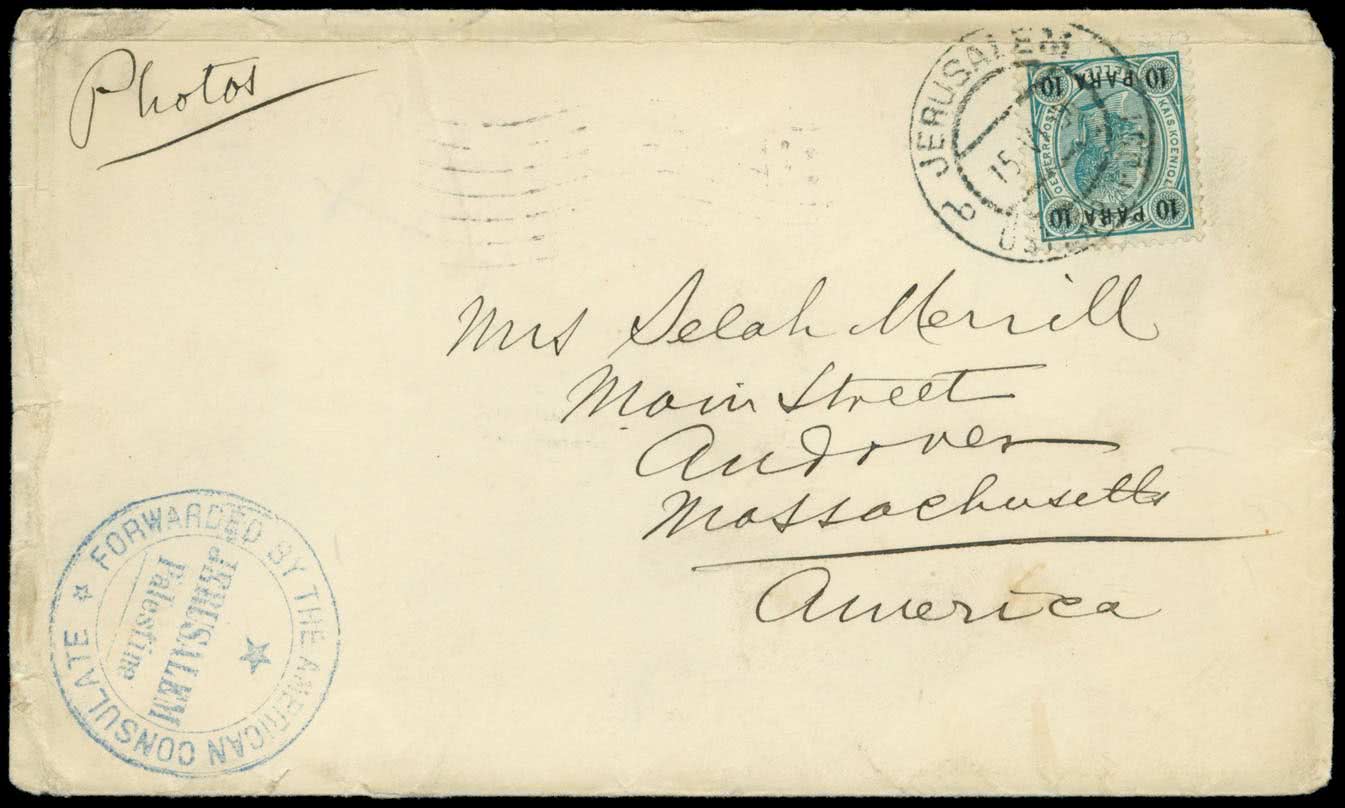 Photos
JERUSALEM
10 PARA 10
KAIS. KOENIGL.
10 PARA 10
Mrs Selah Merrill
Main Street
Andover
Massachusetts
America
FORWARDED BY THE AMERICAN CONSULATE
JERUSALEM
Palestine